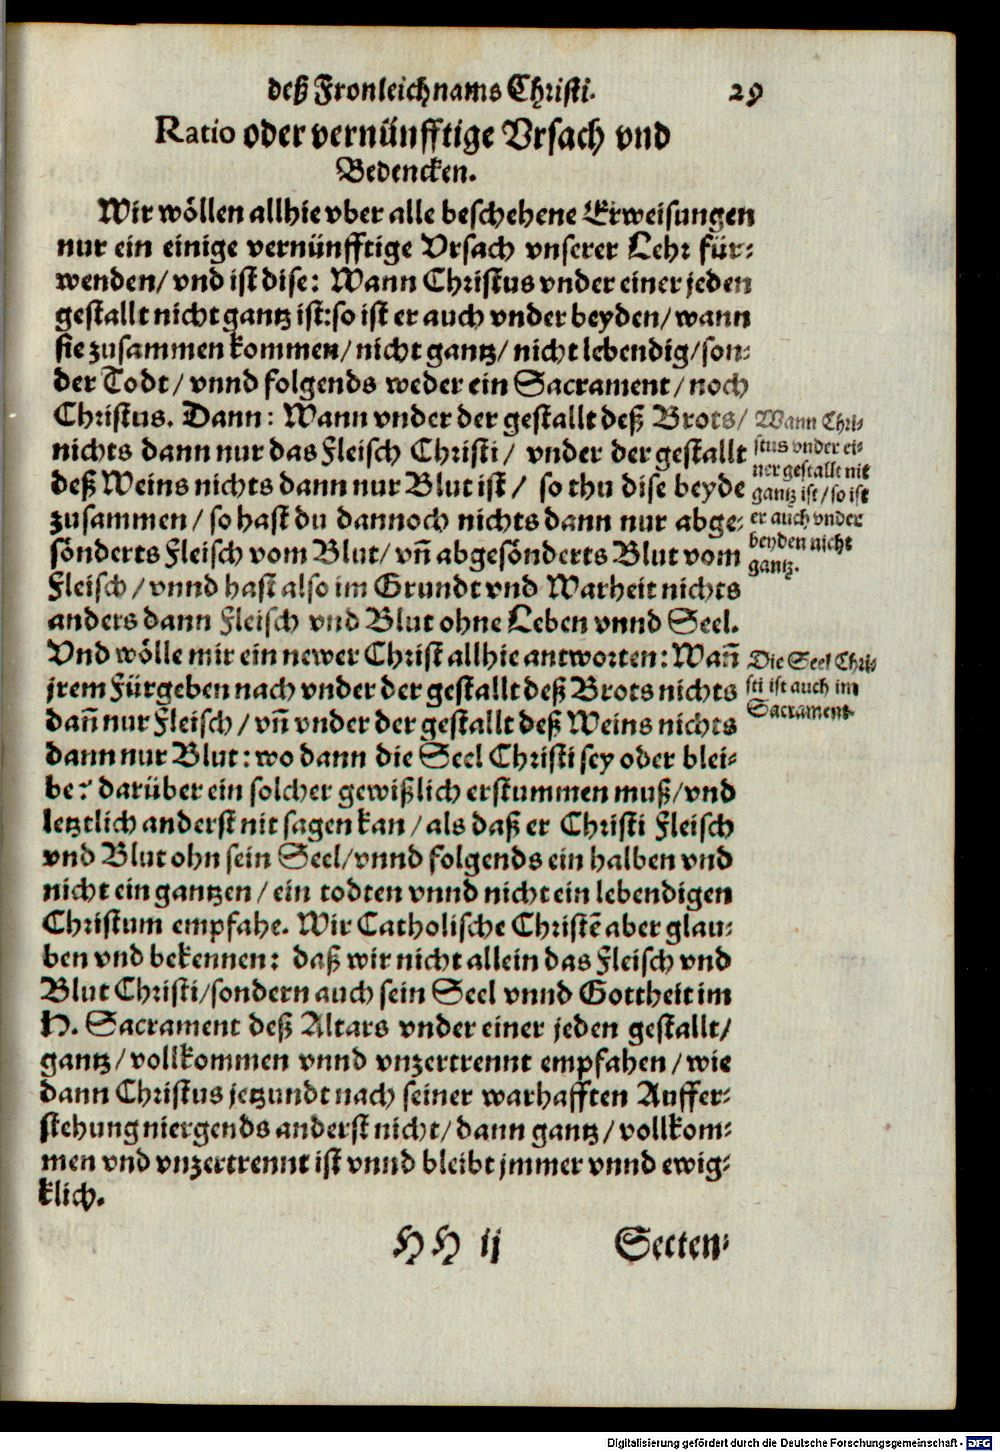 deß Fronleichnams Christi. 29
Ratio oder vernünfftige Vrsach vnd
Bedencken.
Wir wöllen allhie vber alle beschehene Erweisungen
nur ein einige vernünfftige Vrsach vnserer Lehr für-
wenden/ vnd ist dise: Wann Christus vnder einer jeden
gestallt nicht gantz ist: so ist er auch vnder beyden/ wann
sie zusammen kommen/ nicht gantz/ nicht lebendig/ son-
der Todt/ vnnd folgends weder ein Sacrament/ noch
Christus. Dann: Wann vnder der gestallt deß Brots/
nichts dann nur das Fleisch Christi/ vnder der gestallt
deß Weins nichts dann nur Blut ist/ so thu dise beyde
zusammen/ so hast du dannoch nichts dann nur abge-
sönderts Fleisch vom Blut/ vñ abgesönderts Blut vom
Fleisch/ vnnd hast also im Grundt vnd Warheit nichts
anders dann Fleisch vnd Blut ohne Leben vnnd Seel.
Vnd wölle mir ein newer Christ allhie antworten: Wañ
jrem Fürgeben nach vnder der gestallt deß Brots nichts
dañ nur Fleisch/ vñ vnder der gestallt deß Weins nichts
dann nur Blut: wo dann die Seel Christi sey oder blei-
be? darüber ein solcher gewißlich erstummen muß/ vnd
letztlich anderst nit sagen kan/ als daß er Christi Fleisch
vnd Blut ohn sein Seel/ vnnd folgends ein halben vnd
nicht ein gantzen/ ein todten vnnd nicht ein lebendigen
Christum empfahe. Wir Catholische Christē aber glau-
ben vnd bekennen: daß wir nicht allein das Fleisch vnd
Blut Christi/ sondern auch sein Seel vnnd Gottheit im
H. Sacrament deß Altars vnder einer jeden gestallt/
gantz/ vollkommen vnnd vnzertrennt empfahen/ wie
dann Christus jetzundt nach seiner warhafften Auffer-
stehung niergends anderst nicht/ dann gantz/ vollkom-
men vnd vnzertrennt ist vnnd bleibt jmmer vnnd ewig-
klich.
Wann Chri-
stus vnder ei-
ner gestallt nit
gantz ist/ so ist
er auch vnder
beyden nicht
gantz.
Die Seel Chri-
sti ist auch im
Sacrament.
HH ij Secten-
Digitalisierung gefördert durch die Deutsche Forschungsgemeinschaft - DFG